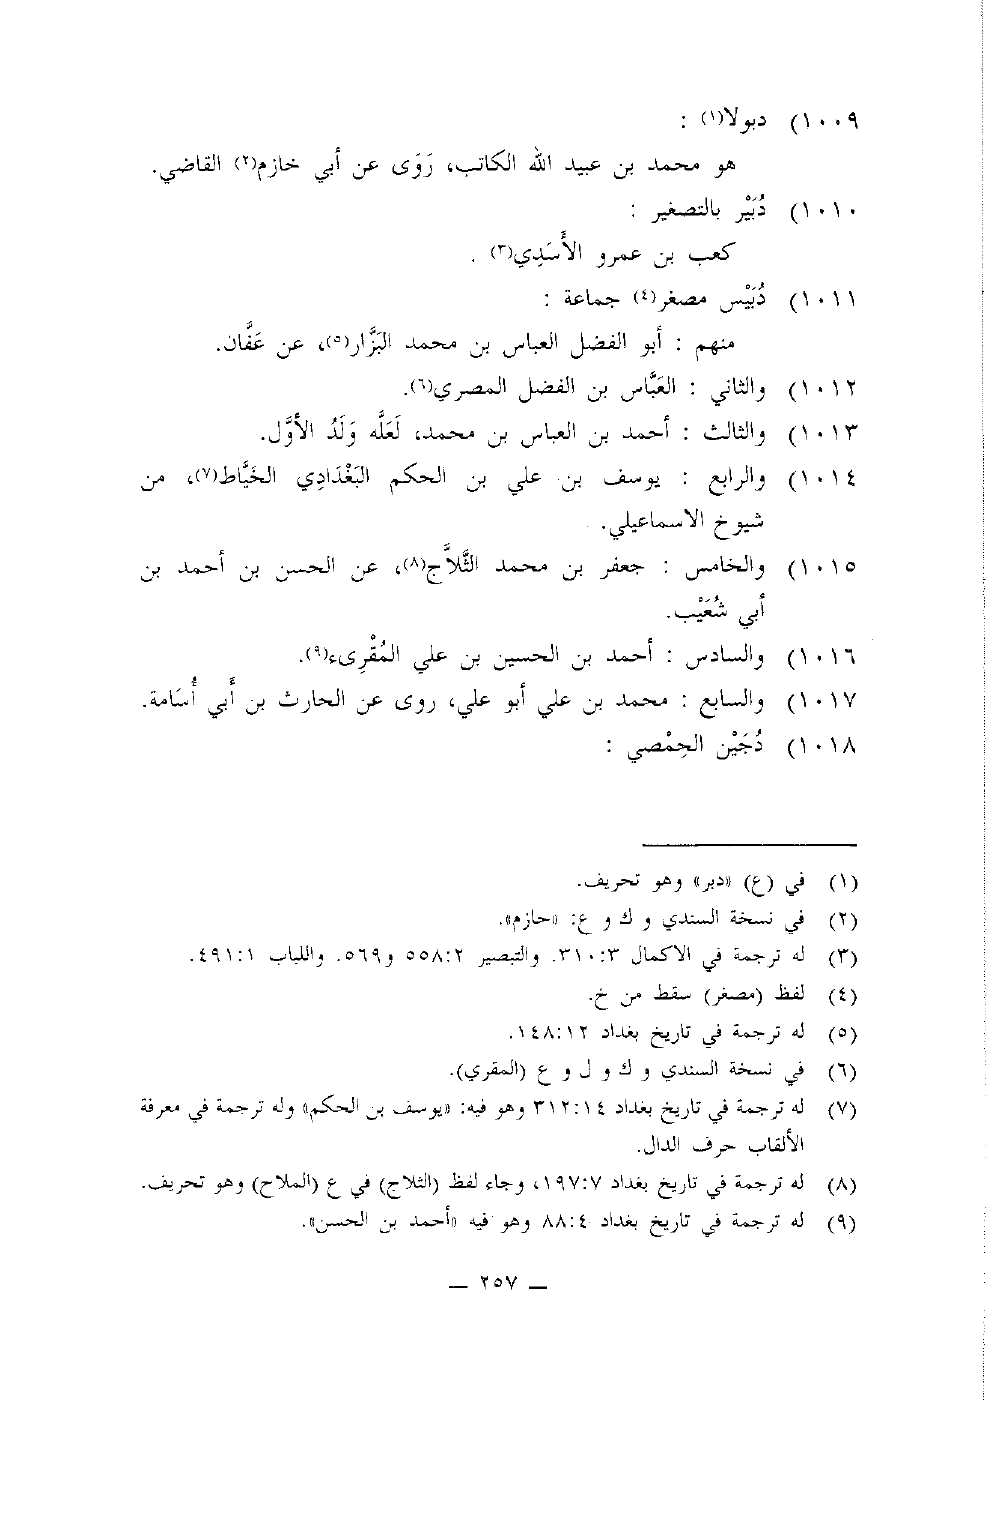 ١٠٠٩) دبولا(١) :
هو محمد بن عبيد الله الكاتب، رَوَى عن أبي خازم(٢) القاضي.
١٠١٠) دُبَيْر بالتصغير :
كعب بن عمرو الأَسَدِي(٣) .
١٠١١) دُبَيْس مصغر(٤) جماعة :
منهم : أبو الفضل العباس بن محمد البَزَّار(٥)، عن عَفَّان.
١٠١٢) والثاني : العَبَّاس بن الفضل المصري(٦).
١٠١٣) والثالث : أحمد بن العباس بن محمد، لَعَلَّه وَلَدُ الأوَّل.
١٠١٤) والرابع : يوسف بن علي بن الحكم البَغْدَادِي الخَيَّاط(٧)، من
شيوخ الاسماعيلي.
١٠١٥) والخامس : جعفر بن محمد الثَّلاَّج(٨)، عن الحسن بن أحمد بن
أبي شُعَيْب.
١٠١٦) والسادس : أحمد بن الحسين بن علي المُقْرِىء(٩).
١٠١٧) والسابع : محمد بن علي أبو علي، روى عن الحارث بن أَبي أُسَامة.
١٠١٨) دُجَيْن الحِمْصي :
(١) في (ع) «دبر» وهو تحريف.
(٢) في نسخة السندي و ك و ع: «حازم».
(٣) له ترجمة في الاكمال ٣١٠:٣. والتبصير ٥٥٨:٢ و٥٦٩. واللباب ٤٩١:١.
(٤) لفظ (مصغر) سقط من خ.
(٥) له ترجمة في تاريخ بغداد ١٤٨:١٢.
(٦) في نسخة السندي و ك و ل و ع (المقري).
(٧) له ترجمة في تاريخ بغداد ٣١٢:١٤ وهو فيه: «يوسف بن الحكم» وله ترجمة في معرفة
الألقاب حرف الدال.
(٨) له ترجمة في تاريخ بغداد ١٩٧:٧، وجاء لفظ (الثلاج) في ع (الملاح) وهو تحريف.
(٩) له ترجمة في تاريخ بغداد ٨٨:٤ وهو فيه «أحمد بن الحسن».
— ٢٥٧ —